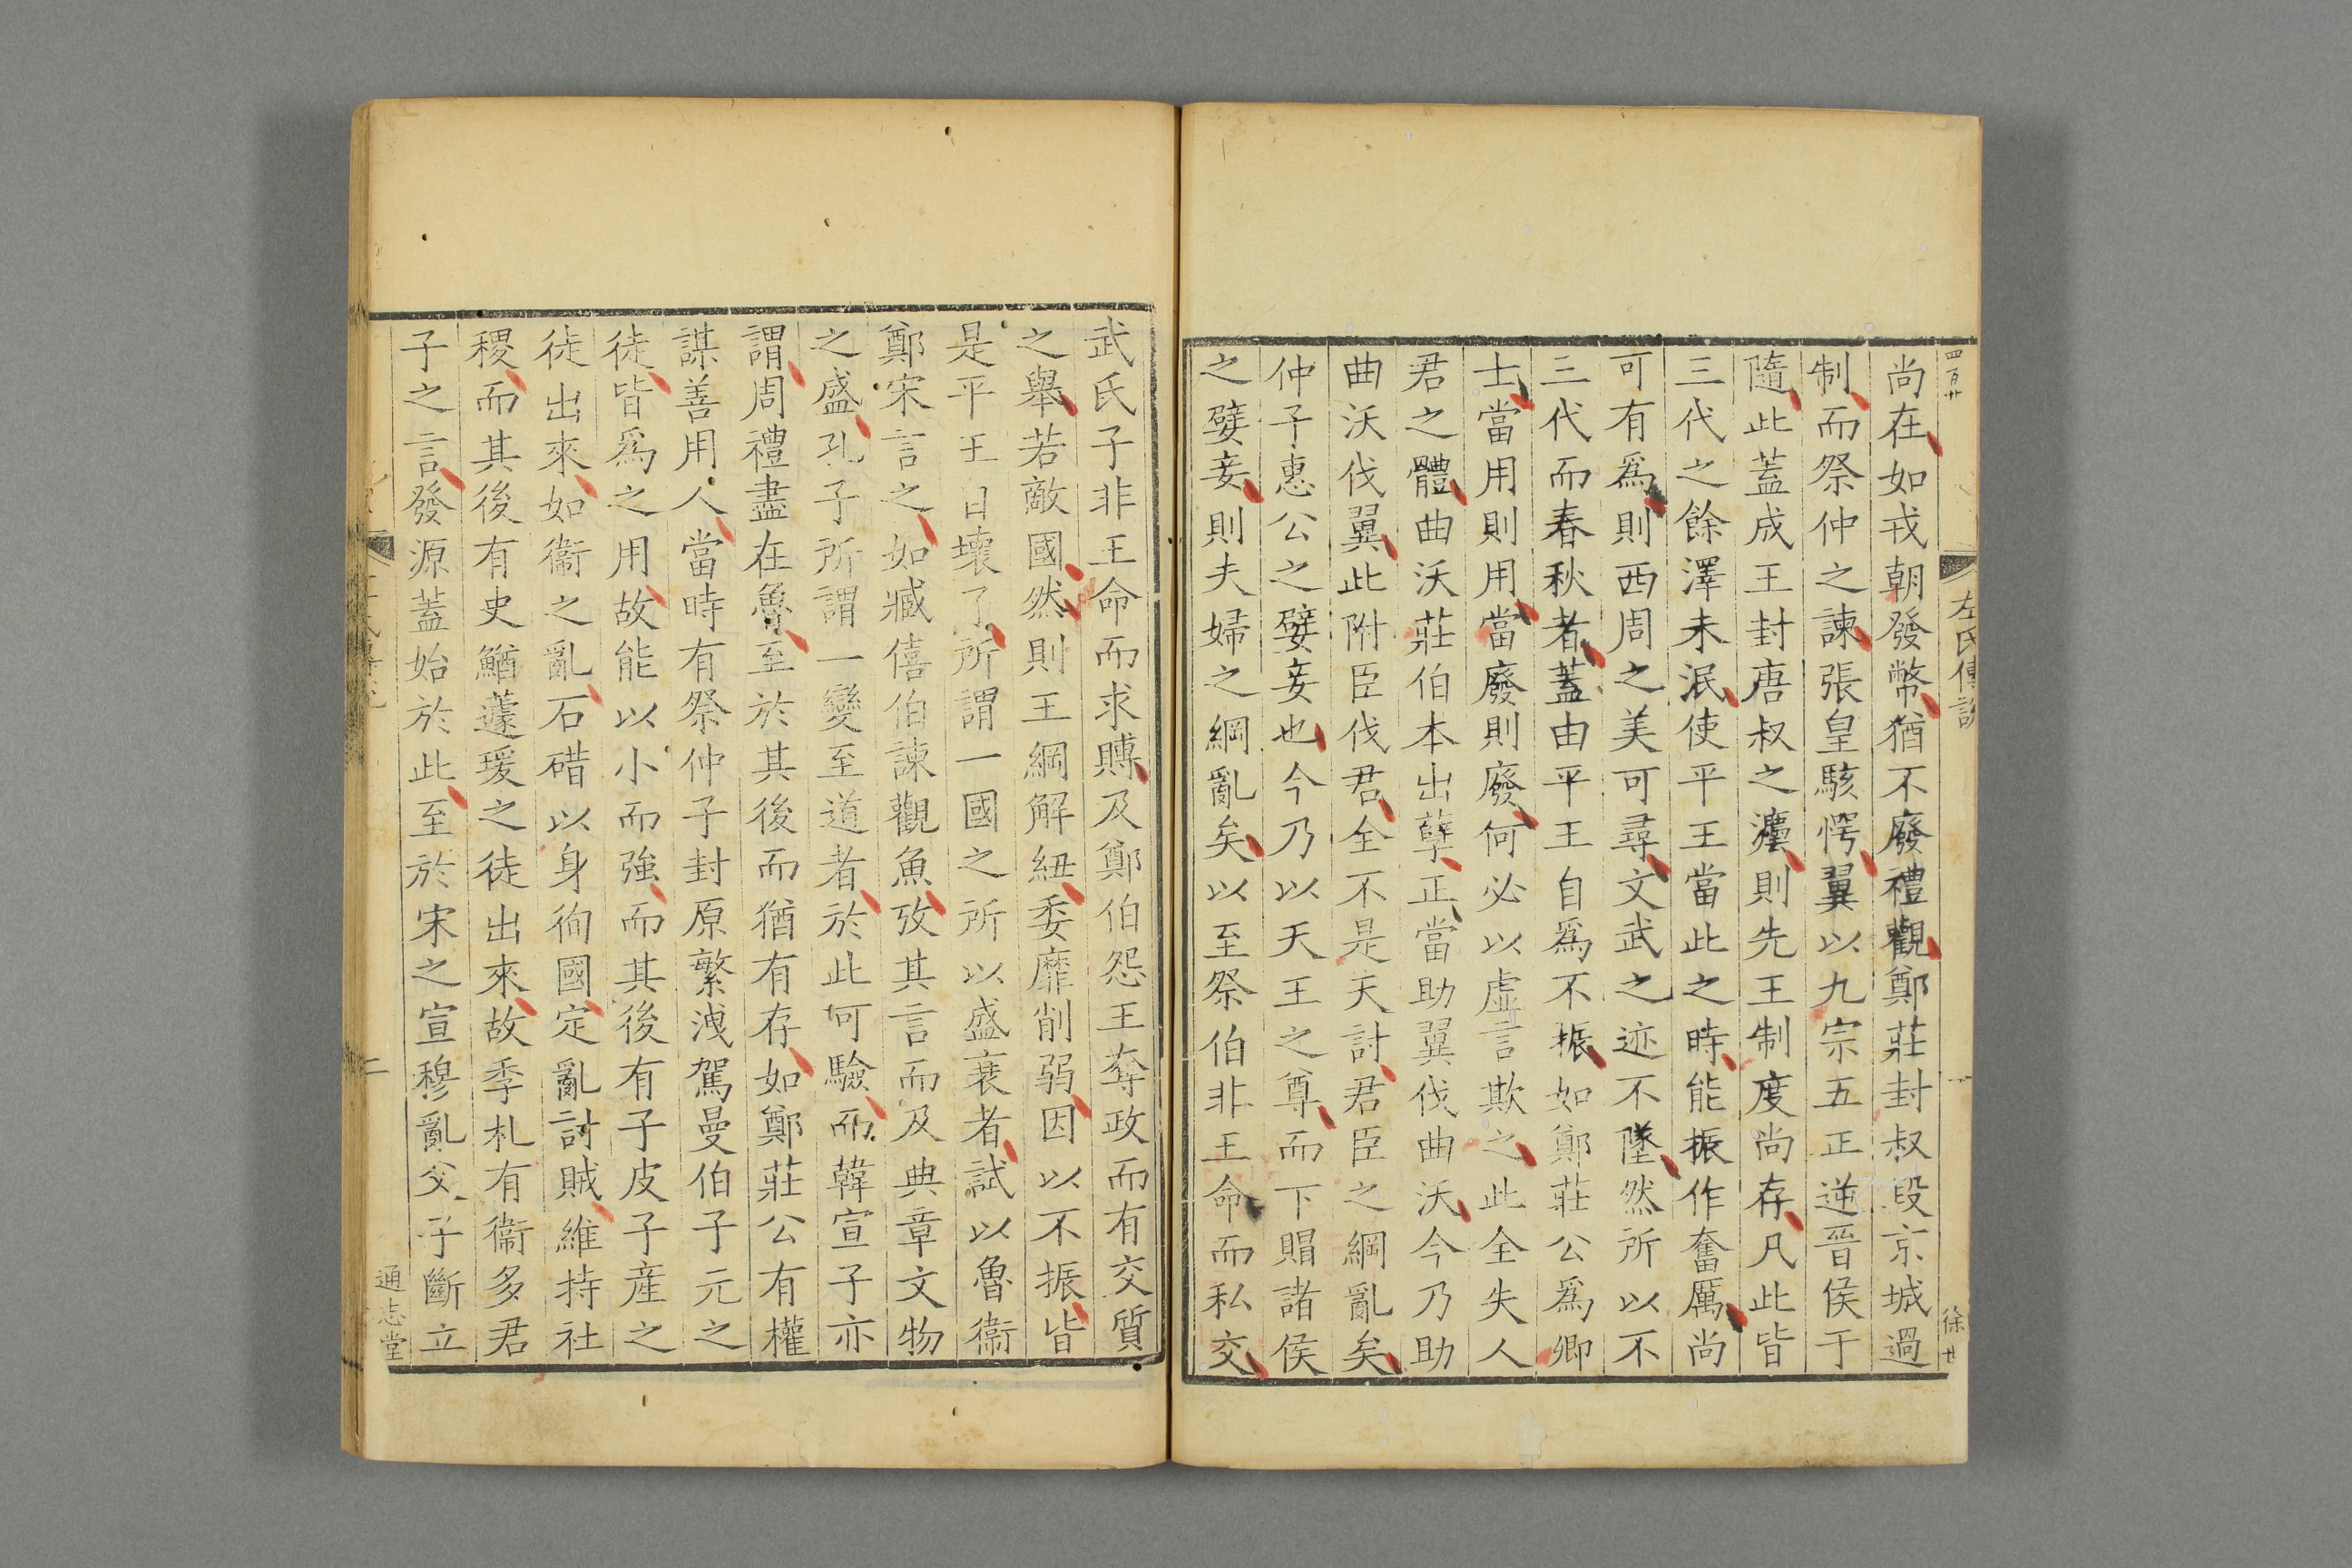 四百廿
左氏傳説
一
徐廿
尚在如戎朝發幣猶不廢禮觀鄭莊封叔段京城過
制而祭仲之諫張皇駭愕翼以九宗五正逆晉侯于
隨此蓋成王封唐叔之澧則先王制度尚存凡此皆
三代之餘澤未泯使平王當此之時能振作奮厲尚
可有爲則西周之美可尋文武之迹不墜然所以不
三代而春秋者蓋由平王自爲不振如鄭莊公爲卿
士當用則用當廢則廢何必以虛言欺之此全失人
君之體曲沃莊伯本出孽正當助翼伐曲沃今乃助
曲沃伐翼此附臣伐君全不是天討君臣之綱亂矣
仲子惠公之嬖妾也今乃以天王之尊而下賵諸侯
之嬖妾則夫婦之綱亂矣以至祭伯非王命而私交
武氏子非王命而求賻及鄭伯怨王奪政而有交質
之舉若敵國然則王綱解紐委靡削弱因以不振皆
是平王自壞了所謂一國之所以盛衰者試以魯衞
鄭宋言之如臧僖伯諫觀魚攷其言而及典章文物
之盛孔子所謂一變至道者於此可驗而韓宣子亦
謂周禮盡在魯至於其後而猶有存如鄭莊公有權
謀善用人當時有祭仲子封原繁洩駕曼伯子元之
徒皆爲之用故能以小而強而其後有子皮子産之
徒出來如衞之亂石碏以身徇國定亂討賊維持社
稷而其後有史鰌蘧瑗之徒出來故季札有衞多君
子之言發源蓋始於此至於宋之宣穆亂父子斷立
二
通志堂